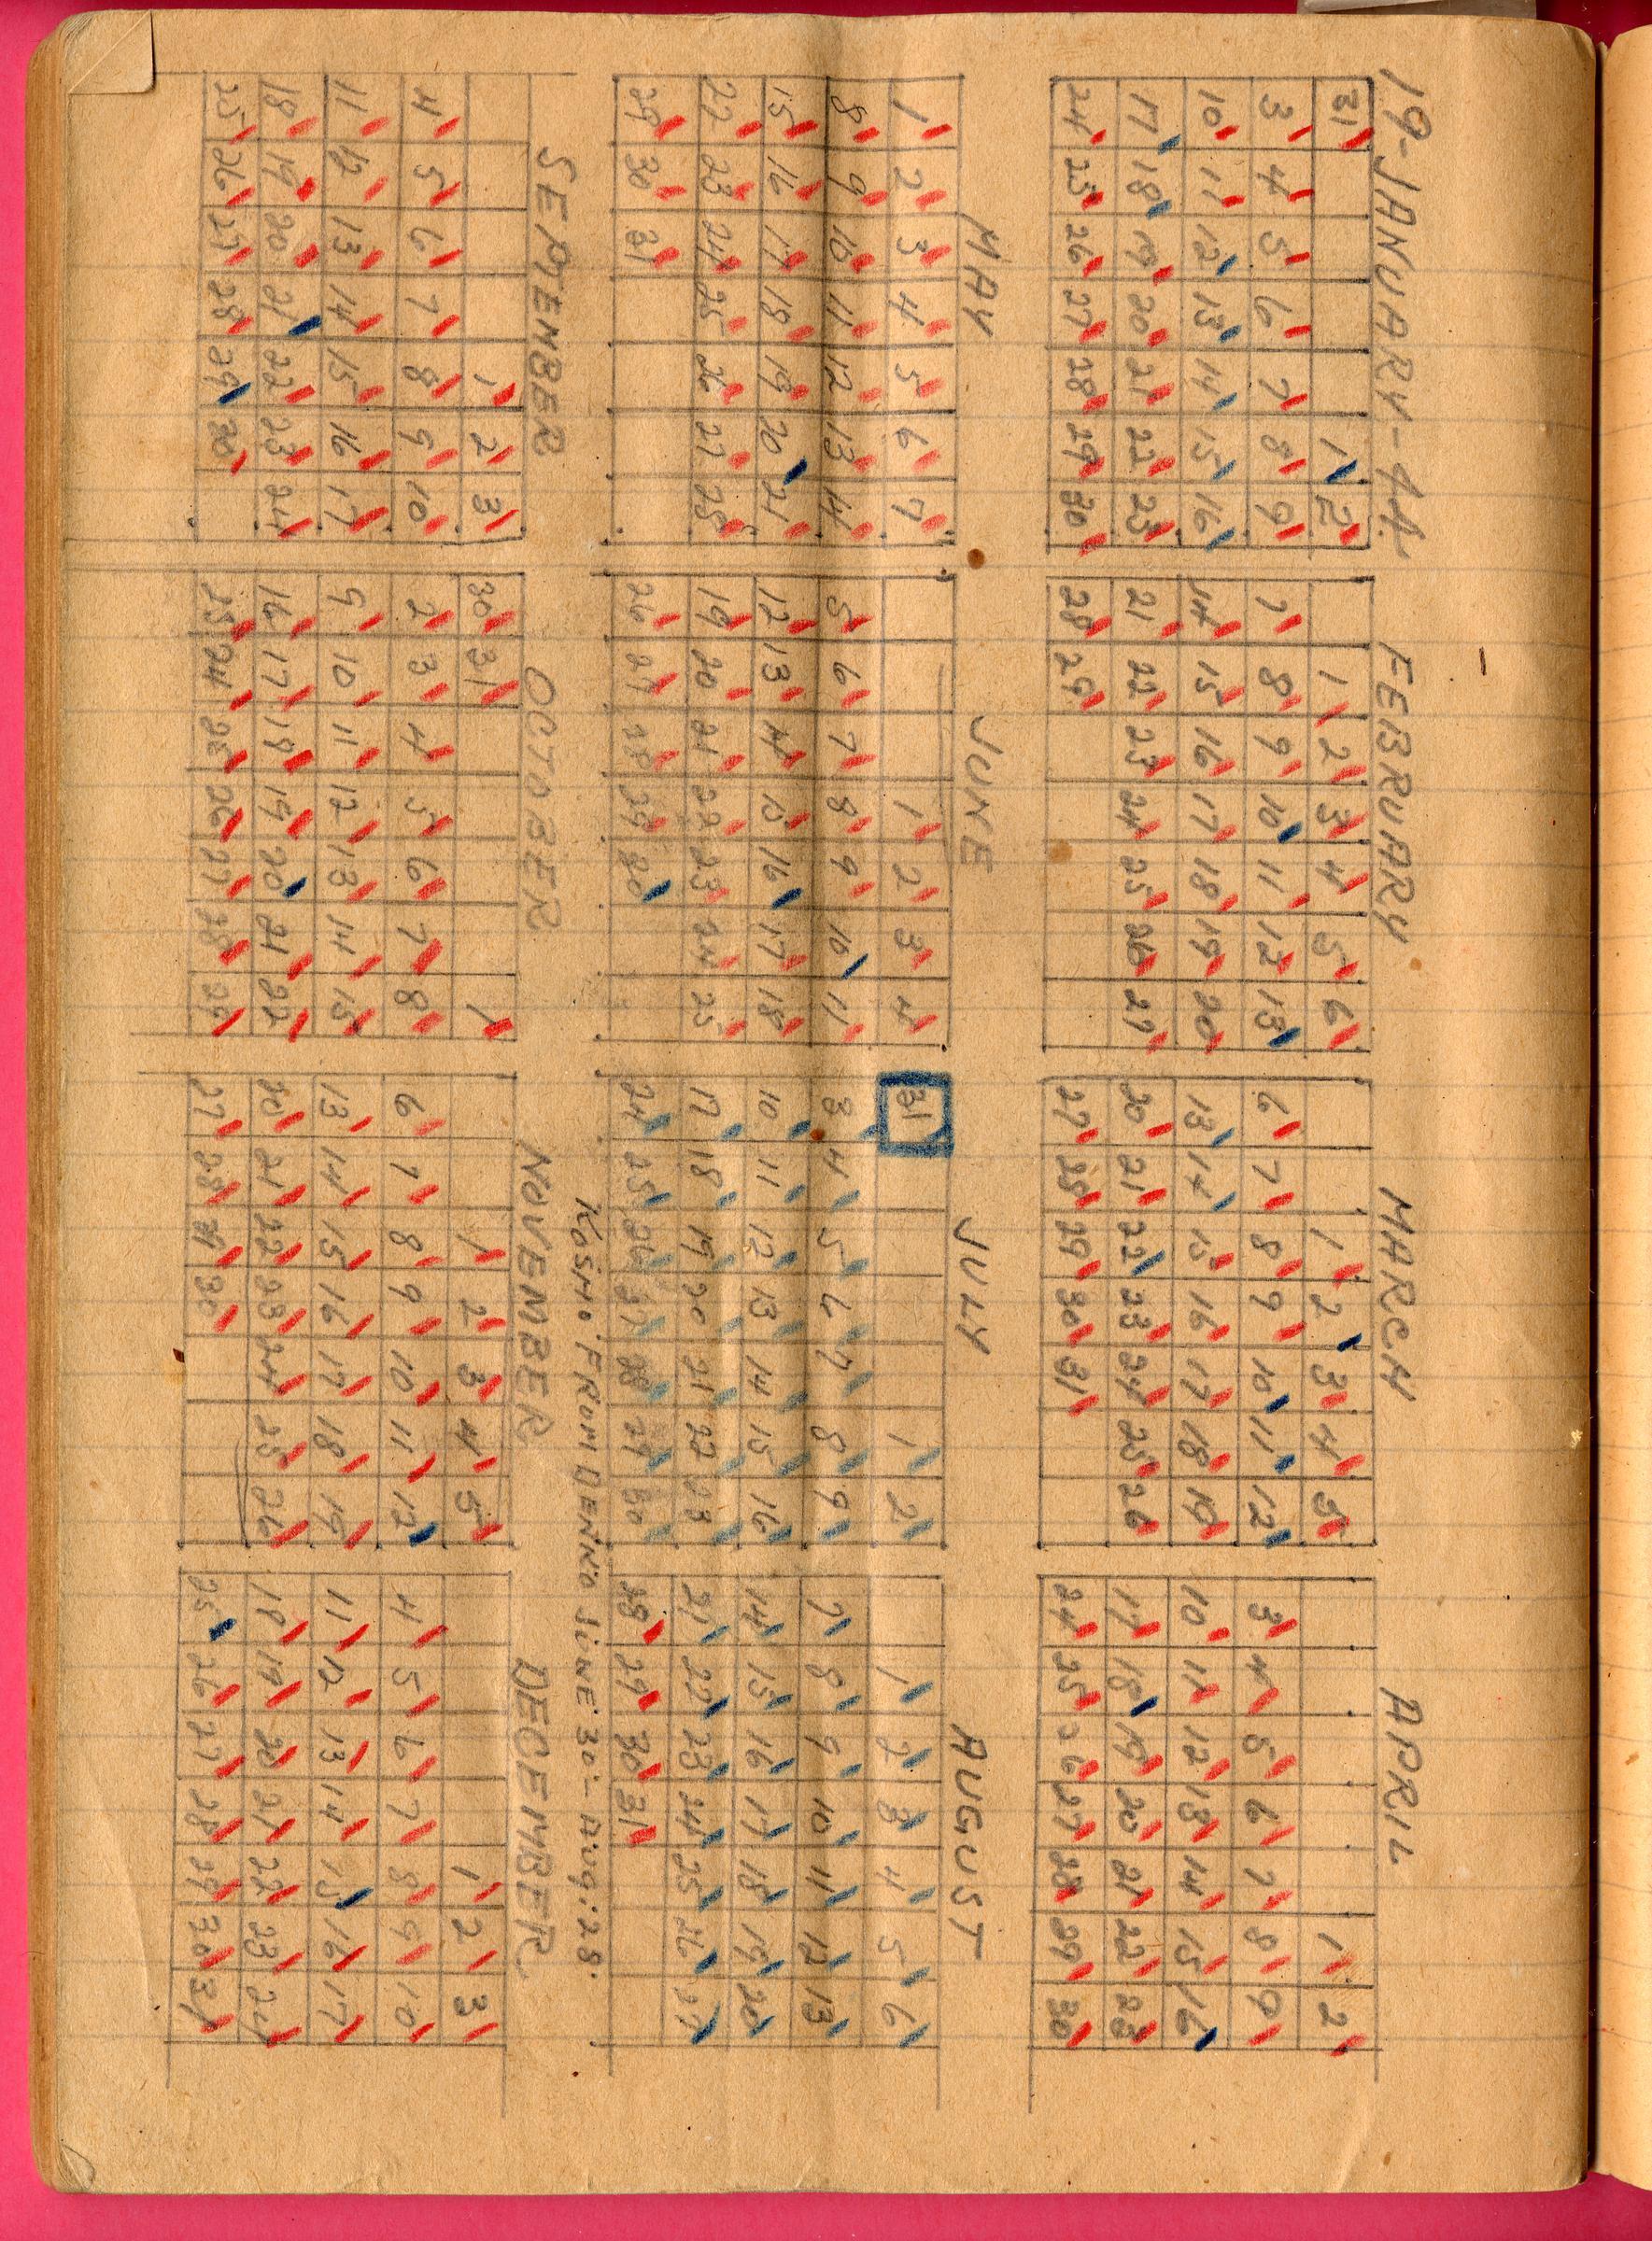 19-JANUARY-44
31 1 2
3 4 5 6 7 8 9
10 11 12 13 14 15 16
17 18 19 20 21 22 23
24 25 26 27 28 29 30
FEBRUARY
1 2 3 4 5 6
7 8 9 10 11 12 13
14 15 16 17 18 19 20
21 22 23 24 25 26 27
28 29
MARCH
1 2 3 4 5
6 7 8 9 10 11 12
13 14 15 16 17 18 19
20 21 22 23 24 25 26
27 28 29 30 31
APRIL
1 2
3 4 5 6 7 8 9
10 11 12 13 14 15 16
17 18 19 20 21 22 23
24 25 26 27 28 29 30
MAY
1 2 3 4 5 6 7
8 9 10 11 12 13 14
15 16 17 18 19 20 21
22 23 24 25 26 27 28
29 30 31
JUNE
1 2 3 4
5 6 7 8 9 10 11
12 13 14 15 16 17 18
19 20 21 22 23 24 25
26 27 28 29 30
JULY
31 1 2
3 4 5 6 7 8 9
10 11 12 13 14 15 16
17 18 19 20 21 22 23
24 25 26 27 28 29 30
AUGUST
1 2 3 4 5 6
7 8 9 10 11 12 13
14 15 16 17 18 19 20
21 22 23 24 25 26 27
28 29 30 31
KOSHO FROM DENNO JUNE 30 - AUG: 28.
SEPTEMBER
1 2 3
4 5 6 7 8 9 10
11 12 13 14 15 16 17
18 19 20 21 22 23 24
25 26 27 28 29 30
OCTOBER
30 31 1
2 3 4 5 6 7 8
9 10 11 12 13 14 15
16 17 18 19 20 21 22
23 24 25 26 27 28 29
NOVEMBER
1 2 3 4 5
6 7 8 9 10 11 12
13 14 15 16 17 18 19
20 21 22 23 24 25 26
27 28 29 30
DECEMBER
1 2 3
4 5 6 7 8 9 10
11 12 13 14 15 16 17
18 19 20 21 22 23 24
25 26 27 28 29 30 31